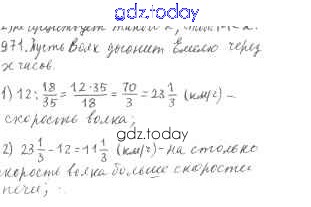 gdz.today
971. Пусть Волк догонит Емелю через
х часов.
1) 12 : 18/35 = 12·35/18 = 70/3 = 23 1/3 (км/ч) –
скорость волка;
gdz.today
2) 23 1/3 – 12 = 11 1/3 (км/ч) – на столько
скорость волка больше скорости
печи;
gdz.today